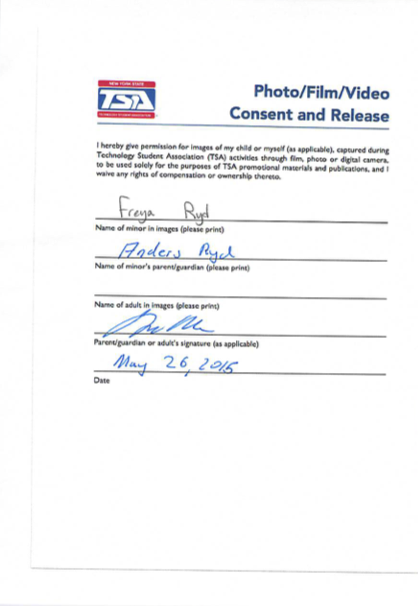 NEW YORK STATE
TSA
TECHNOLOGY STUDENT ASSOCIATION
Photo/Film/Video
Consent and Release
I hereby give permission for images of my child or myself (as applicable), captured during
Technology Student Association (TSA) activities through film, photo or digital camera,
to be used solely for the purposes of TSA promotional materials and publications, and I
waive any rights of compensation or ownership thereto.
Freya Ryd
Name of minor in images (please print)
Anders Ryd
Name of minor's parent/guardian (please print)
Name of adult in images (please print)
Parent/guardian or adult's signature (as applicable)
May 26, 2015
Date